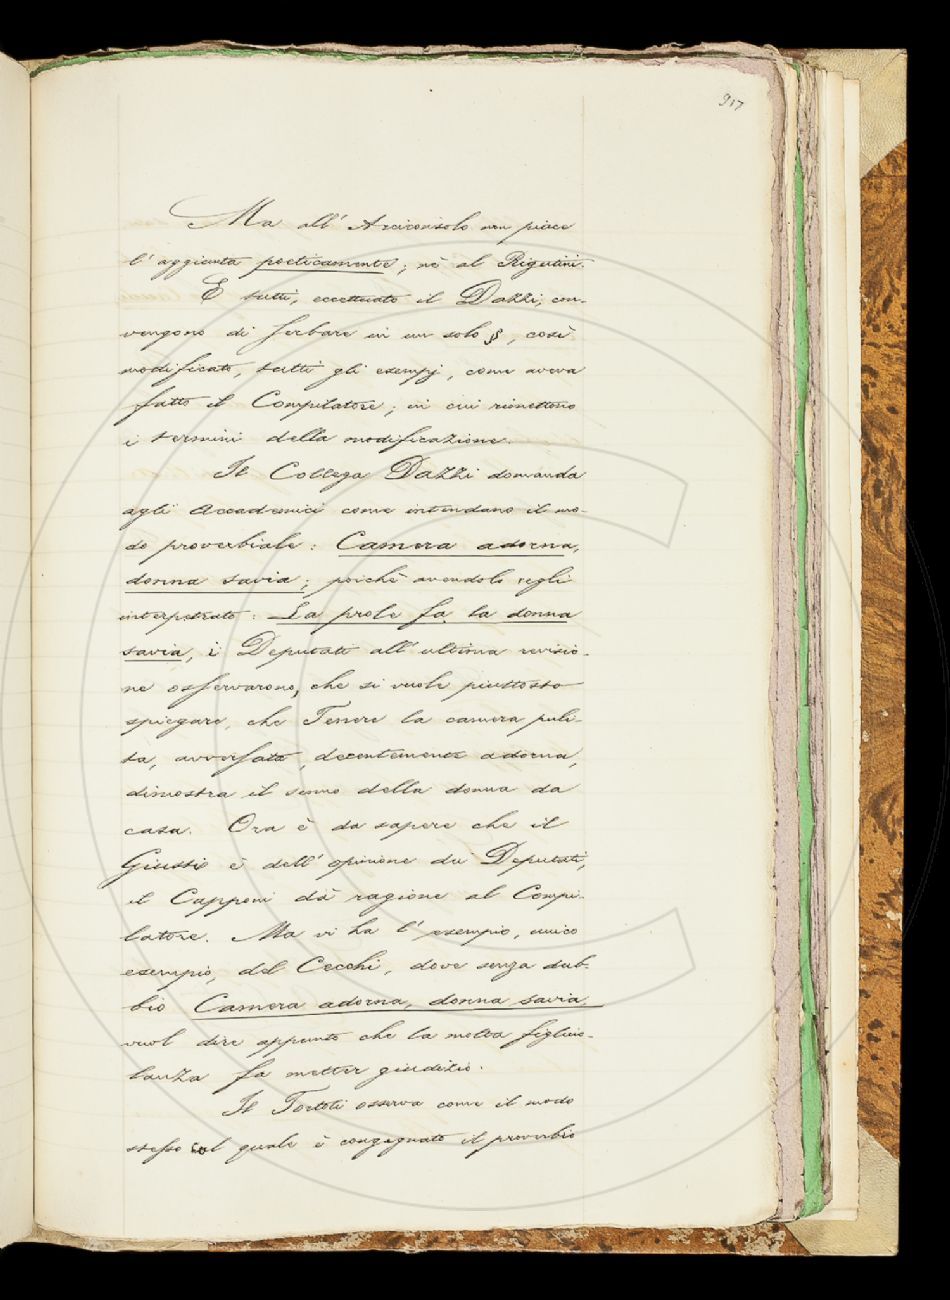 917
Ma all' Arciconsolo non piace
l' aggiunta poeticamente; nè al Rigutini.
E tutti, eccettuato il Dazzi, con-
vengono di serbare in un solo §, così
modificato, tutti gli esempj, come aveva
fatto il Compilatore; in cui rimettono
i termini della modificazione.
Il Collega Dazzi domanda
agli Accademici come intendano il mo-
do proverbiale: Camera adorna,
donna savia; poichè avendolo egli
interpetrato: La prole fa la donna
savia, i Deputati all' ultima revisio-
ne osservarono, che si vuole piuttosto
spiegare, che Tenere la camera puli-
ta, avversata, decentemente adorna,
dimostra il senno della donna da
casa. Ora è da sapere che il
Giusti è dell' opinione dei Deputati,
il Capponi dà ragione al Compi-
latore. Ma vi ha l' esempio, unico
esempio, del Cecchi, dove senza dub-
bio Camera adorna, donna savia,
vuol dire appunto che la molta figliuo-
lanza fa metter giudizio.
Il Tortoli osserva come il modo
stesso col quale è congegnato il proverbio